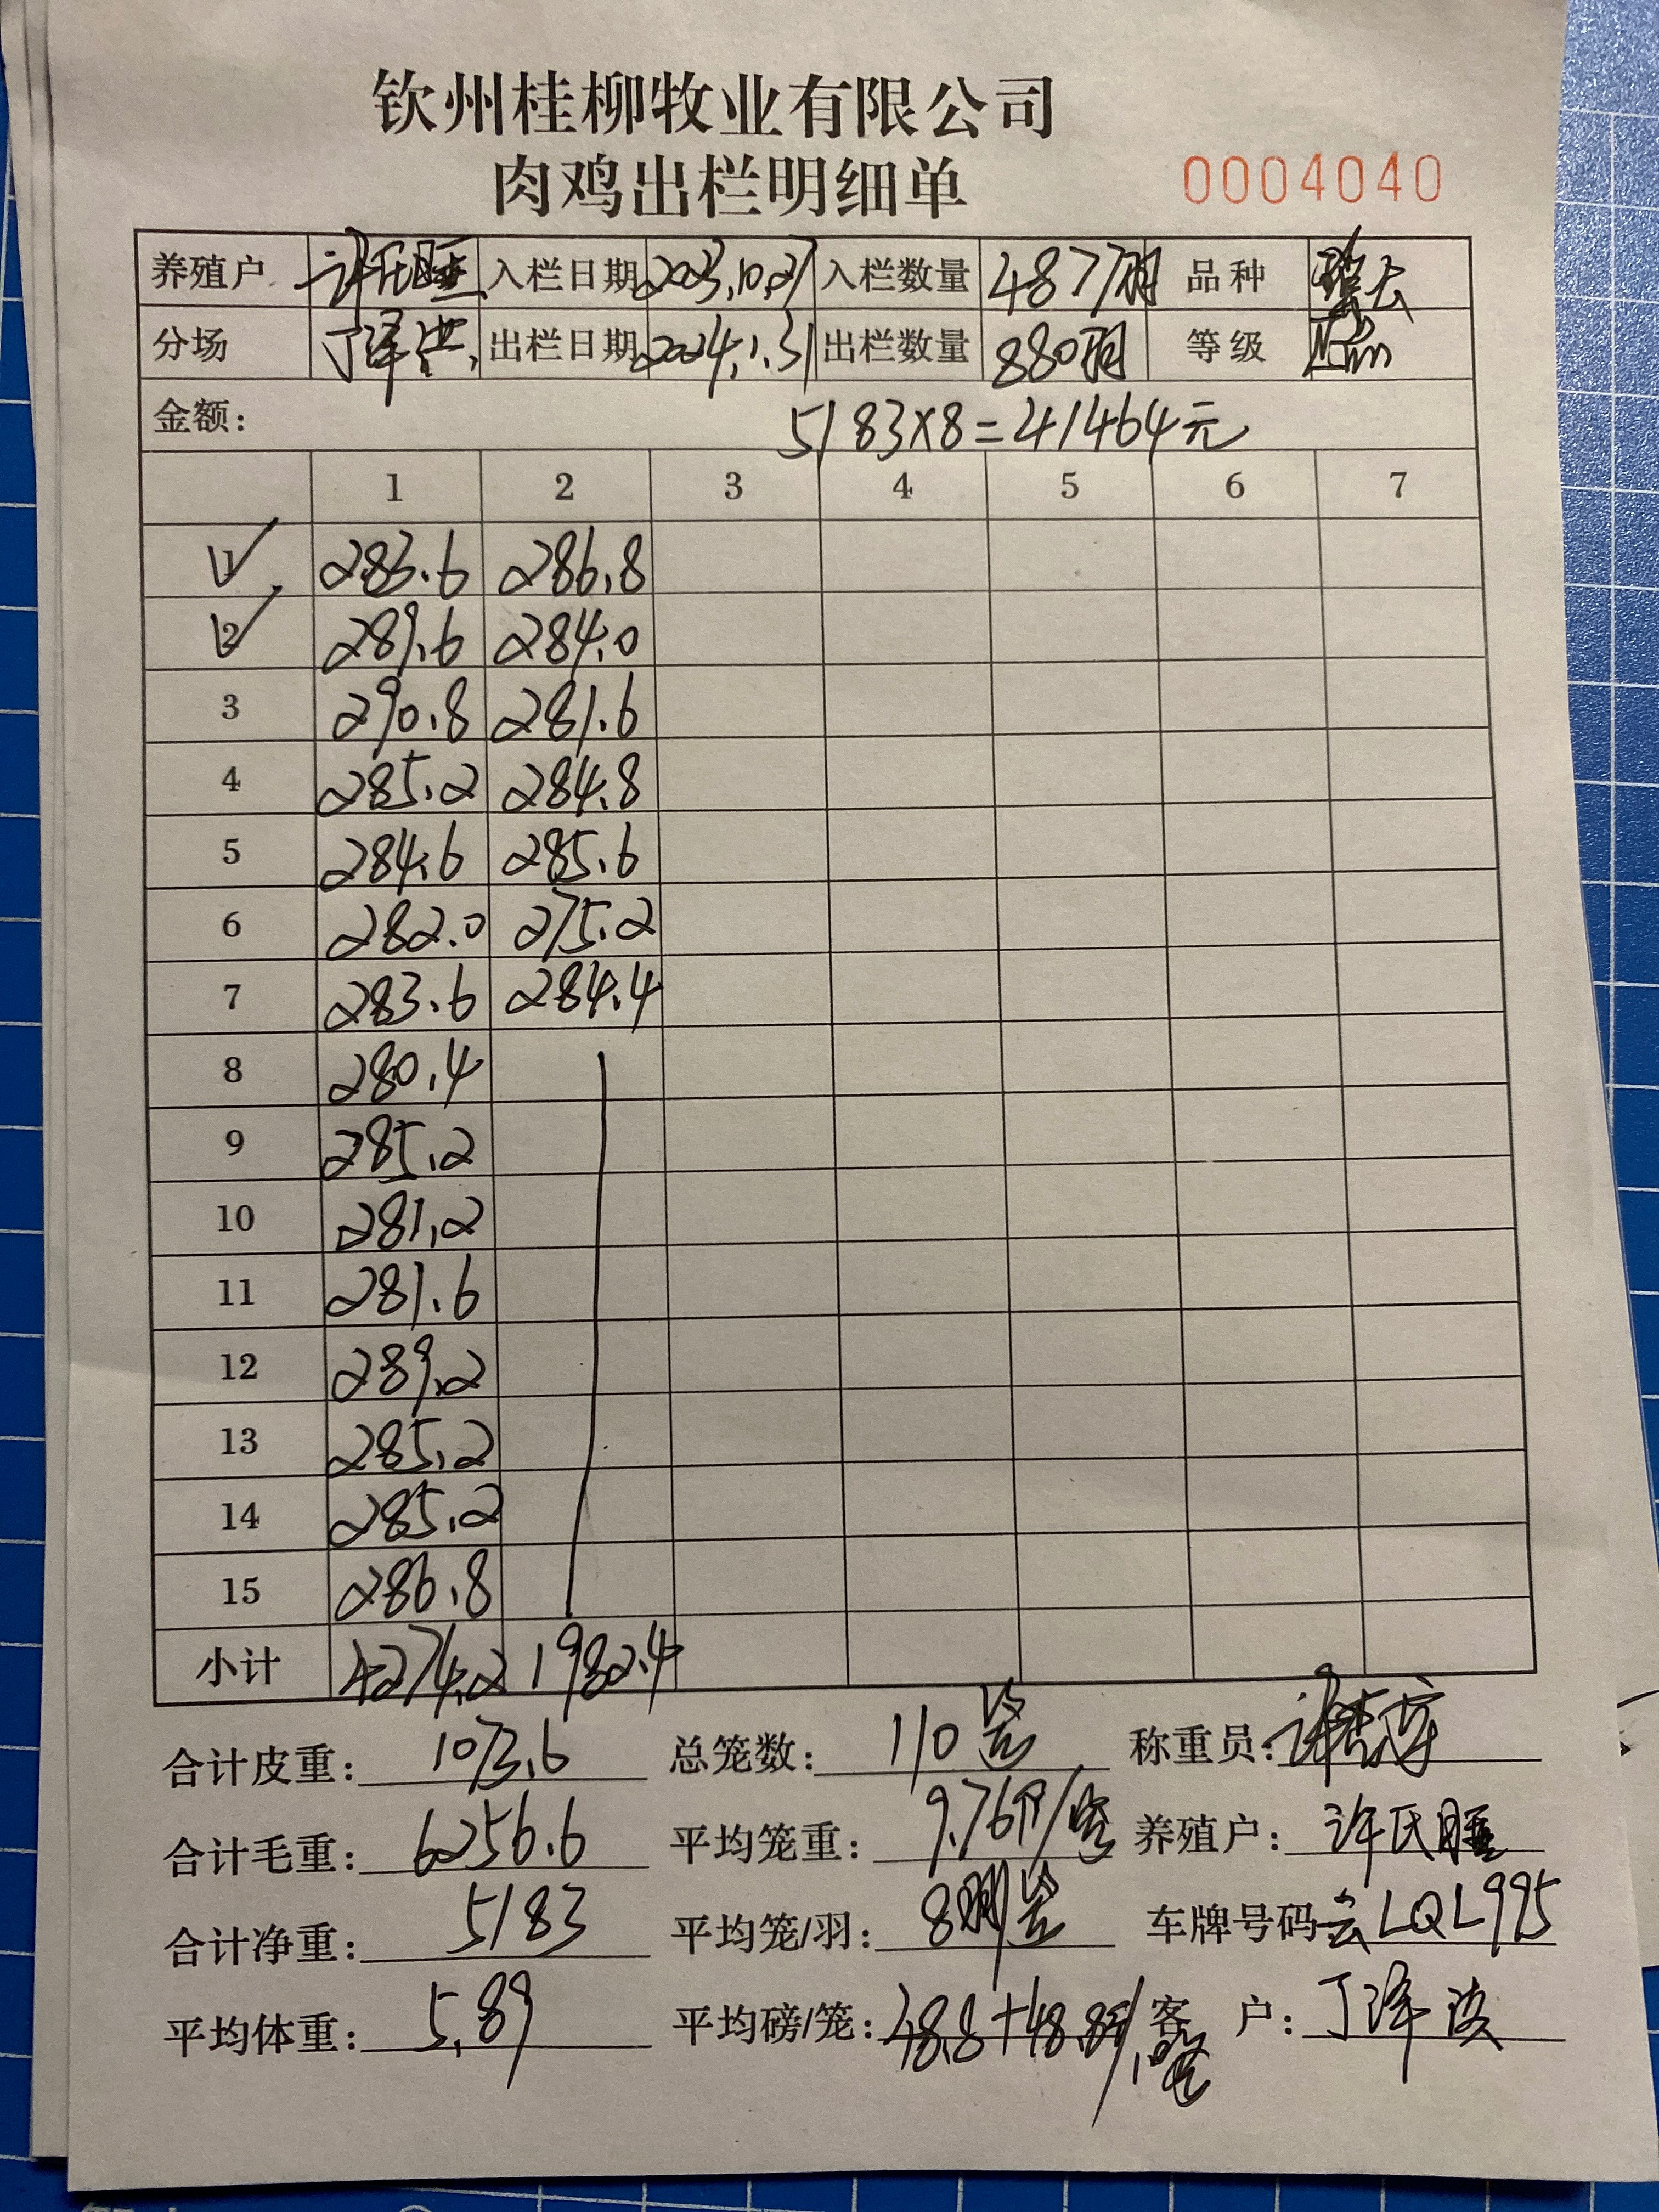 钦州桂柳牧业有限公司
肉鸡出栏明细单 0004040
养殖户 许氏 入栏日期 2023.10.27 入栏数量 4877羽 品种
分场 丁泽洪 出栏日期 2024.1.31 出栏数量 880羽 等级
金额: 5183×8=41464元
1 2 3 4 5 6 7
1 283.6 286.8
2 289.6 284.0
3 290.8 281.6
4 285.2 284.8
5 284.6 285.6
6 282.0 275.2
7 283.6 284.4
8 280.4
9 285.2
10 281.2
11 281.6
12 289.2
13 285.2
14 285.2
15 286.8
小计 4274.2 1982.4
合计皮重: 1073.6 总笼数: 110笼 称重员: 许
合计毛重: 6256.6 平均笼重: 9.76斤/笼 养殖户: 许氏
合计净重: 5183 平均笼/羽: 8羽/笼 车牌号码 LQL995
平均体重: 5.89 平均磅/笼: 48.8+48.8 客 户: 丁泽洪